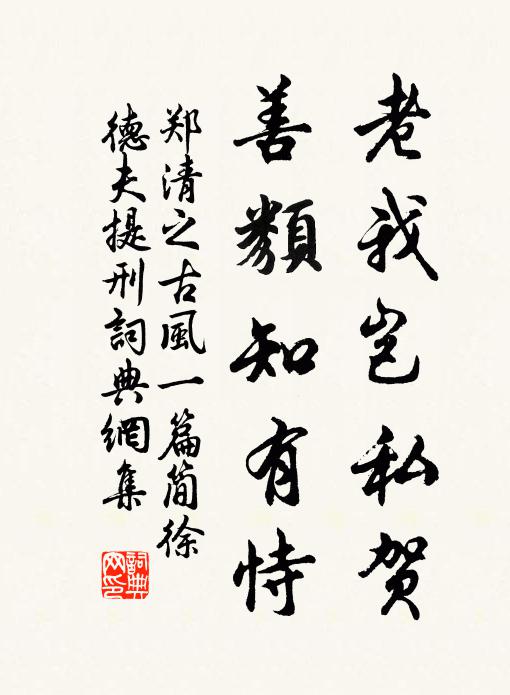 老我岂私贺
善類知有恃
郑清之古風一篇简徐
德夫提刑詞典網集
詞典網印